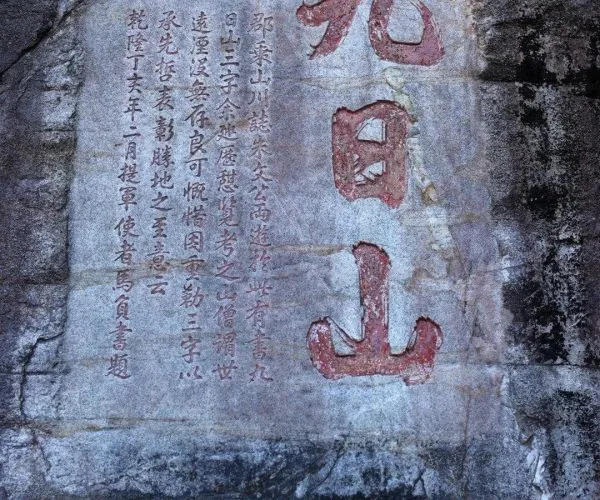 九日山
郡乘山川誌朱文公両遊於此有書九
日山三字余廵歷憇覽考之山僧謂世
遠湮沒無存良可慨惜因重勒三字以
承先哲表彰勝地之至意云
乾隆丁亥年二月提軍使者馬負書題